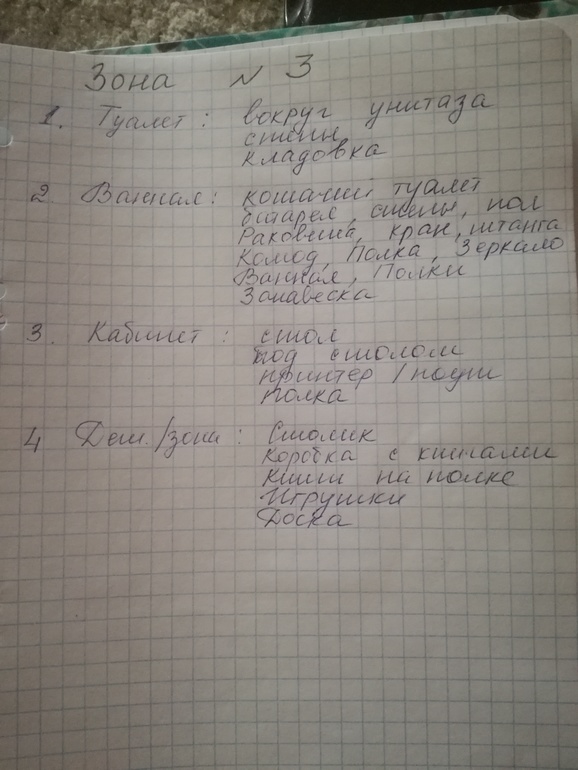 Зона N 3
1. Туалет: вокруг унитаза
стены
кладовка
2 Ванная: кошачий туалет
батарея, стены, пол
Раковина, кран, штанга
Комод, Полка, Зеркало
Ванная, Полки
Занавеска
3. Кабинет: стол
под столом
принтер /
полка
4 Дет./зона: Столик
Коробка с книгами
Книги на полке
Игрушки
Доска